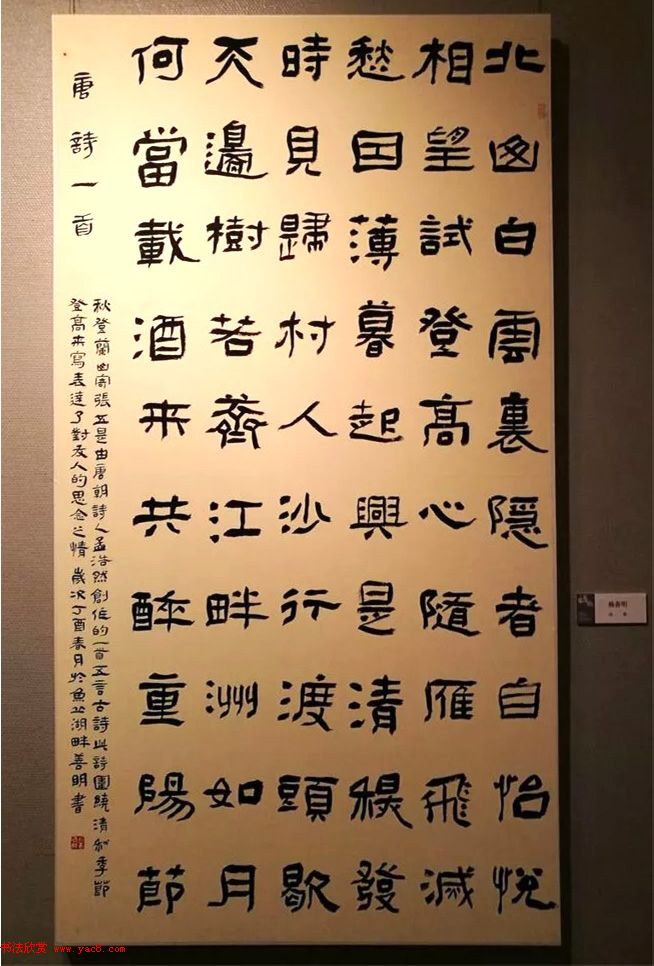 北山白雲裏隱者自怡悅
相望試登高心隨雁飛滅
愁因薄暮起興是清穐發
時見歸村人沙行渡頭歇
天邊樹若薺江畔洲如月
何當載酒来共醉重陽節
唐詩一首
秋登蘭山寄張五是由唐朝詩人孟浩然創作的一首五言古詩此詩圍繞清秋季節
登高来寫表達了對友人的思念之情 歲次丁酉春月於魚湖畔善明書
书法欣赏 www.yac8.com